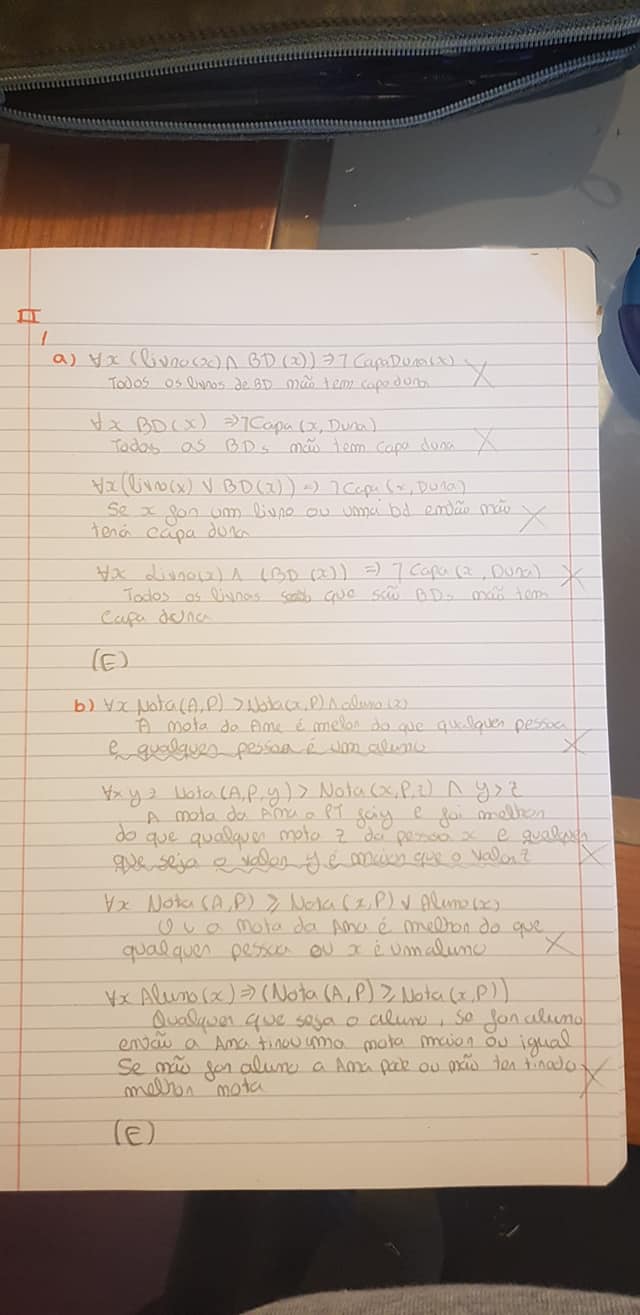 II
1
a) ∀x (livro(x) ∧ BD(x)) ⇒ ¬CapaDura(x)
Todos os livros de BD não tem capa dura
∀x BD(x) ⇒ ¬Capa(x, Dura)
Todos as BDs não tem capa dura
∀x(livro(x) ∨ BD(x)) ⇒ ¬Capa(x, Dura)
Se x for um livro ou uma bd então não
terá capa dura
∀x Livro(x) ∧ (BD(x)) ⇒ ¬Capa(x, Dura)
Todos os livros que são BDs não tem
Capa dura
(E)
b) ∀x Nota(A,P) > Nota(x,P) ∧ aluno(x)
A nota da Ana é melhor do que qualquer pessoa
e qualquer pessoa é um aluno
∀x y z Nota(A,P,y) > Nota(x,P,z) ∧ y > z
A nota da Ana a PI foi y e foi melhor
do que qualquer nota z da pessoa x e qualquer
que seja o valor y é maior que o valor z
∀x Nota(A,P) ⩾ Nota(x,P) ∨ Aluno(x)
Ou a nota da Ana é melhor do que
qualquer pessoa ou x é um aluno
∀x Aluno(x) ⇒ (Nota(A,P) ⩾ Nota(x,P))
Qualquer que seja o aluno, se for aluno
então a Ana tirou uma nota maior ou igual
Se não for aluno a Ana pode ou não ter tirado
melhor nota
(E)